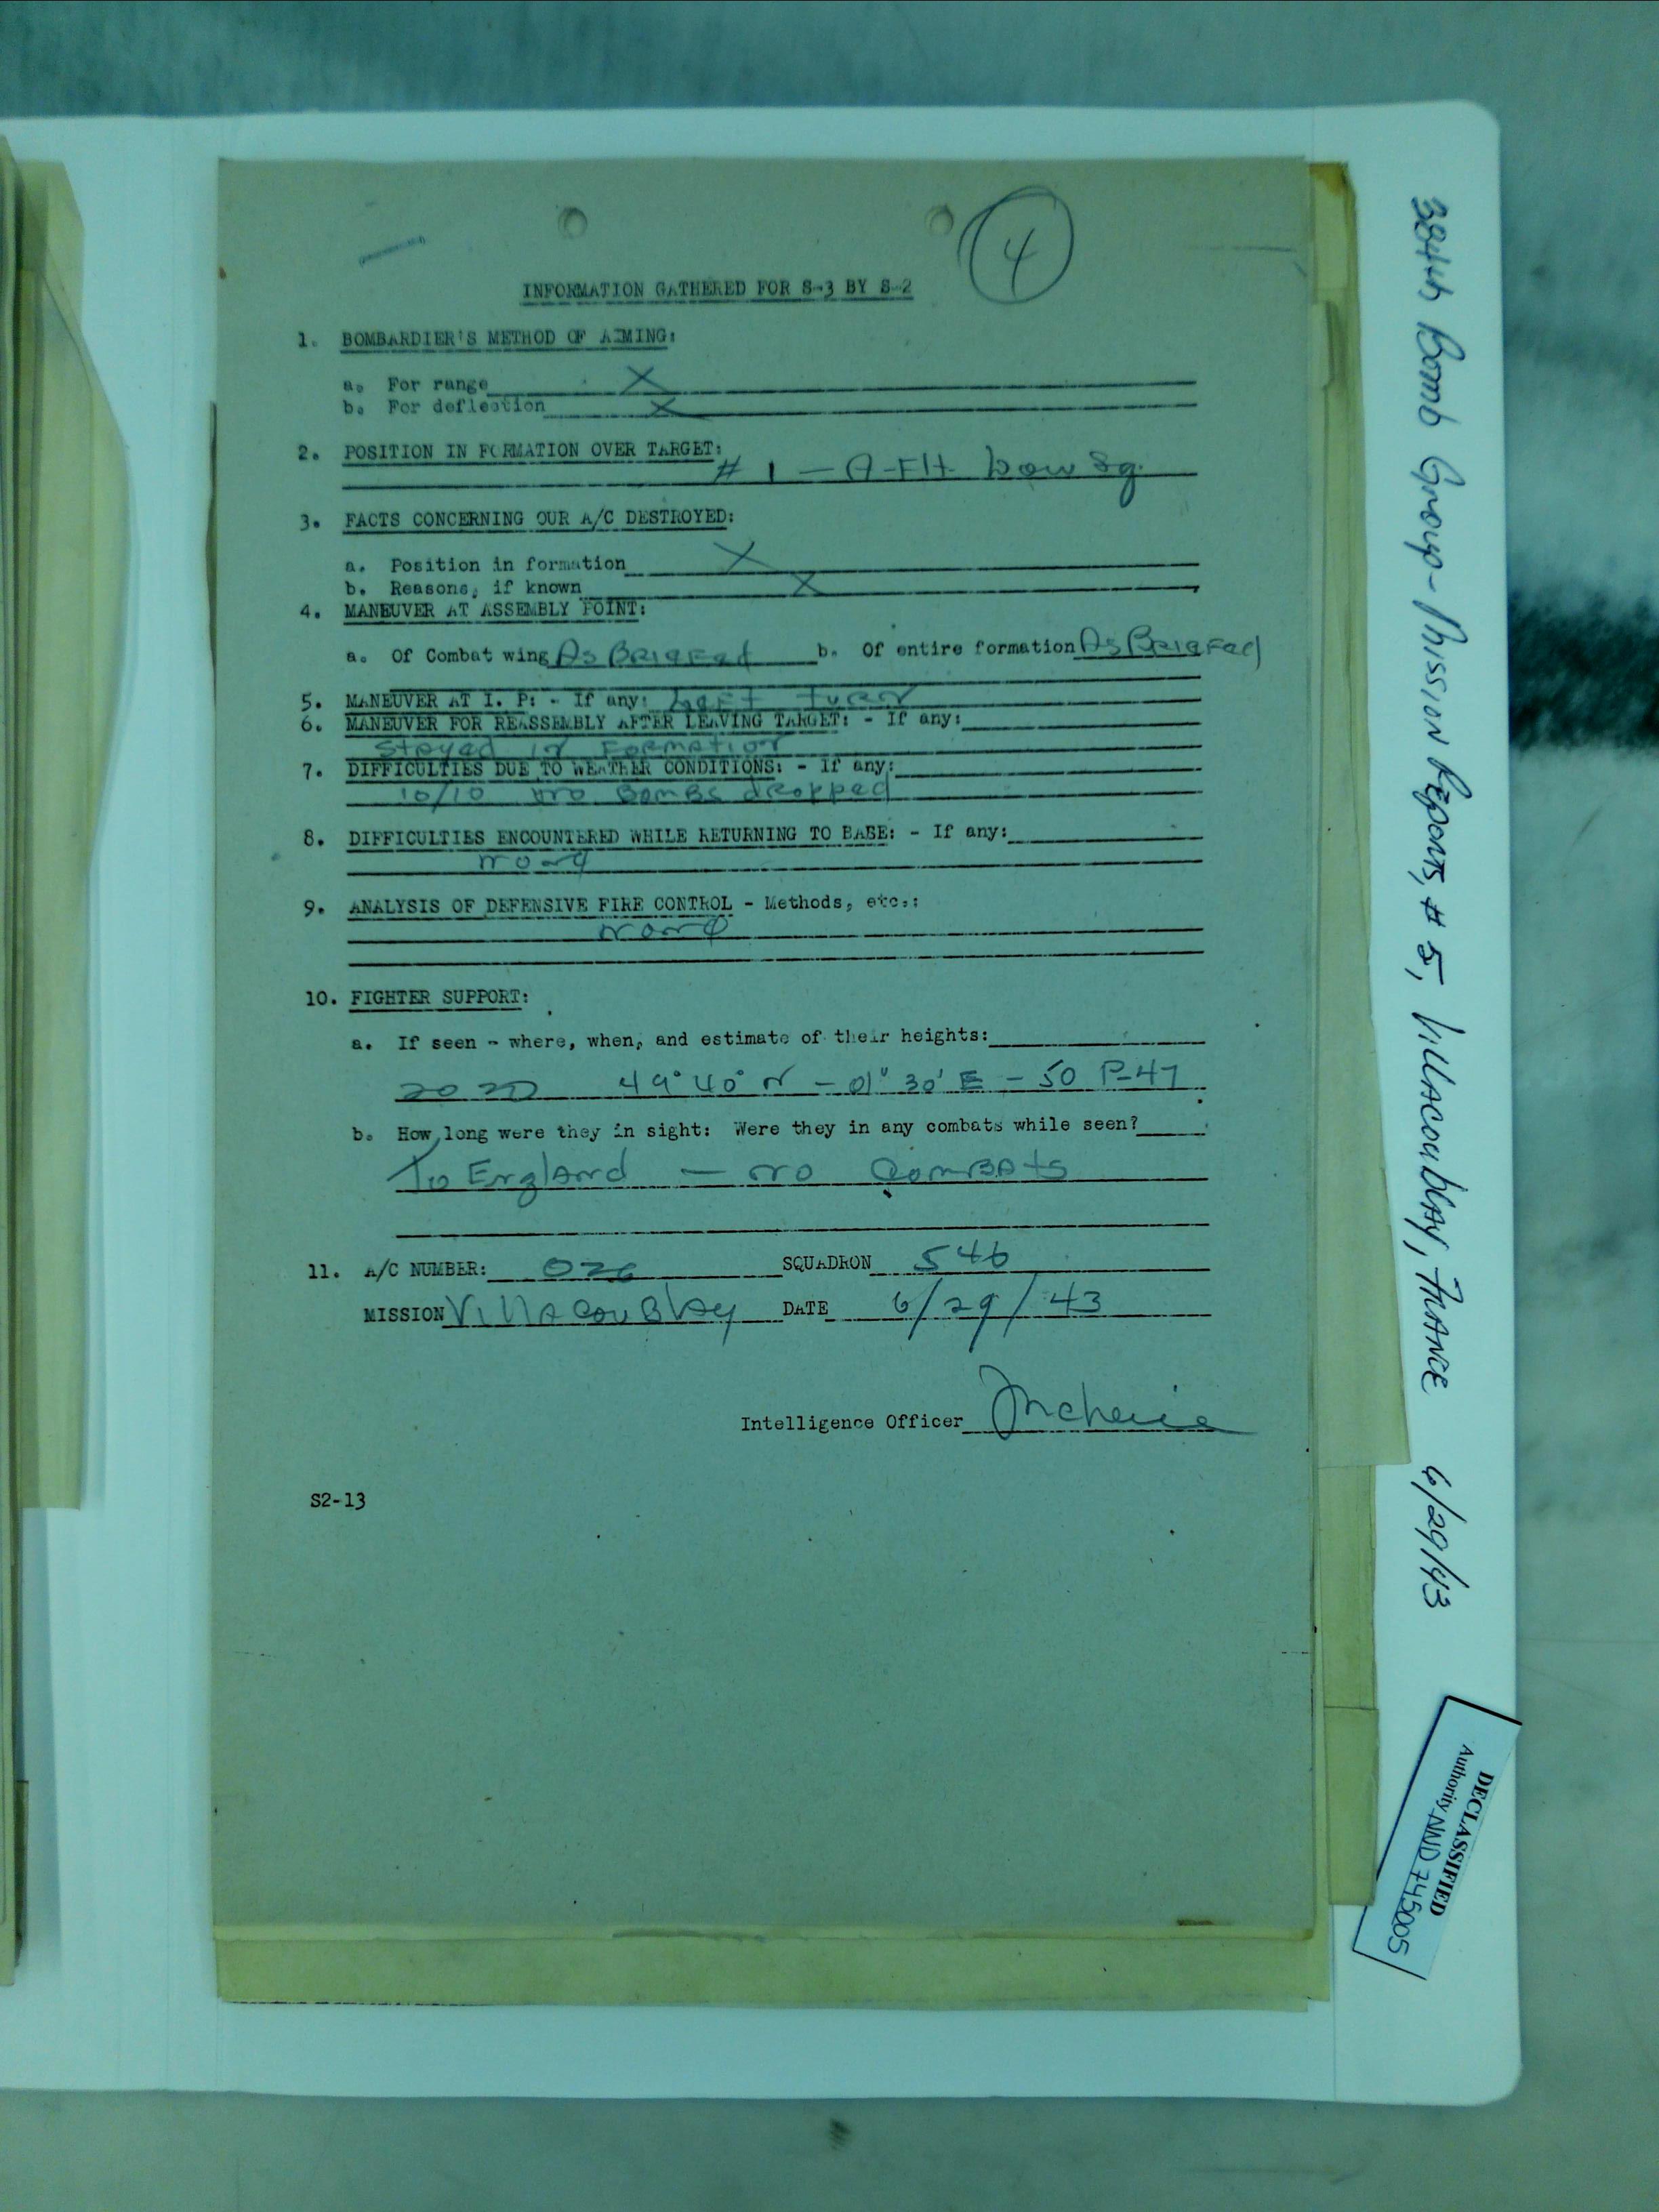 4
INFORMATION GATHERED FOR S-3 BY S-2
1. BOMBARDIER'S METHOD OF AIMING:
a. For range X
b. For deflection X
2. POSITION IN FORMATION OVER TARGET:
# 1 — A-Flt Low Sq.
3. FACTS CONCERNING OUR A/C DESTROYED:
a. Position in formation X
b. Reasons, if known X
4. MANEUVER AT ASSEMBLY POINT:
a. Of Combat wing As Briefed b. Of entire formation As Briefed
5. MANEUVER AT I. P: - If any: Left turn
6. MANEUVER FOR REASSEMBLY AFTER LEAVING TARGET: - If any:
Stayed in Formation
7. DIFFICULTIES DUE TO WEATHER CONDITIONS: - If any:
10/10 no Bombs dropped
8. DIFFICULTIES ENCOUNTERED WHILE RETURNING TO BASE: - If any:
none
9. ANALYSIS OF DEFENSIVE FIRE CONTROL - Methods, etc.:
none
10. FIGHTER SUPPORT:
a. If seen - where, when, and estimate of their heights:
49° 40° N — 01° 30' E — 50 P-47
b. How long were they in sight: Were they in any combats while seen?
To England — no Combats
11. A/C NUMBER: 026 SQUADRON 546
MISSION Villacoublay DATE 6/29/43
Intelligence Officer
S2-13
384th Bomb Group - Mission Reports, # 5, Villacoublay, France 6/29/43
DECLASSIFIED
Authority NND 745005